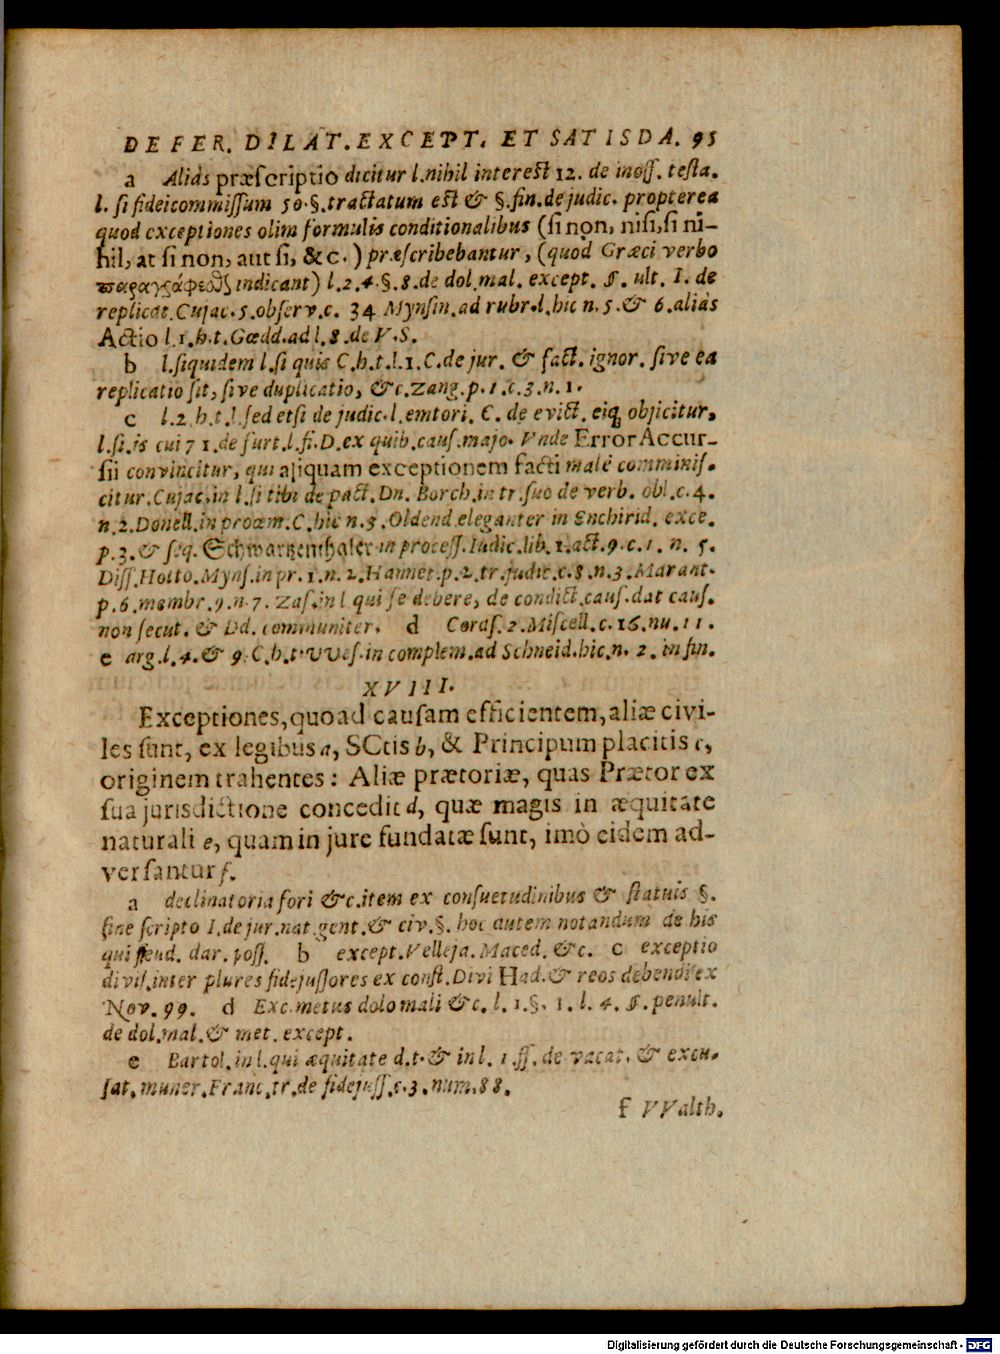 DE FER. DILAT. EXCEPT. ET SATISDA. 95
a Aliàs præscriptio dicitur l. nihil interest 12. de inoff. testa.
l. si fideicommissum 50. §. tractatum est & §. fin. de judic. propterea
quod exceptiones olim formulis conditionalibus (si non, nisi, si ni-
hil, at si non, aut si, &c.) præscribebantur, (quod Græci verbo
indicant) l. 2. 4. §. 8. de dol. mal. except. §. ult. I. de
replicat. Cujac. 5. observ. c. 34 Mynsin. ad rubr. l. hic n. 5. & 6. aliàs
Actio l. 1. h. t. Gœdd. ad l. 8. de V. S.
b l. siquidem l. si quis C. h. t. l. 1. C. de jur. & fact. ignor. sive ea
replicatio sit, sive duplicatio, &c. Zang. p. 1. c. 3. n. 1.
c l. 2. h. t. l. sed etsi de judic. l. emtori. C. de evict. eiq; objicitur,
l. si. is cui 71. de furt. l. fi. D. ex quib. caus. majo. Vnde Error Accur-
sii convincitur, qui aliquam exceptionem facti malè comminis-
citur. Cujac. in l. si tibi de pact. Dn. Borch. in tr. suo de verb. obl. c. 4.
n. 2. Donell. in proœm. C. hic n. 3. Oldend. eleganter in Enchirid. exce.
p. 3. & seq. Schwartzenthaler in process. Iudic. lib. 1. act. 9. c. 1. n. 5.
Diss. Hotto. Myns. in pr. 1. n. 2. Hannet. p. 2. tr. judic. c. 8. n. 3. Marant.
p. 6. membr. 9. n. 7. Zas. in l qui se debere, de condict. caus. dat caus.
non secut. & Dd. communiter. d Coras. 2. Miscell. c. 16. nu. 11.
e arg. l. 4. & 9. C. h. t. VVes. in complem. ad Schneid. hic. n. 2. in fin.
XVIII.
Exceptiones, quoad causam efficientem, aliæ civi-
les sunt, ex legibus a, SCtis b, & Principum placitis c,
originem trahentes: Aliæ prætoriæ, quas Prætor ex
sua jurisdictione concedit d, quæ magis in æquitate
naturali e, quam in jure fundatæ sunt, imò eidem ad-
versantur f.
a declinatoria fori &c. item ex consuetudinibus & statuis §.
sine scripto I. de jur. nat. gent. & civ. §. hoc autem notandum de his
qui feud. dar. poss. b except. Velleja. Maced. &c. c exceptio
divis. inter plures fidejussores ex const. Divi Had. & reos debendi ex
Nov. 99. d Exc. metus dolo mali &c. l. 1. §. 1. l. 4. §. penult.
de dol. mal. & met. except.
e Bartol. in l. qui æquitate d. t. & in l. 1. ff. de vacat. & excu-
sat. muner. Franc. tr. de fidejuss. c. 3. num. 88.
f VValth.
Digitalisierung gefördert durch die Deutsche Forschungsgemeinschaft - DFG